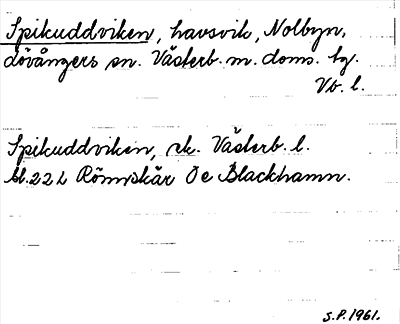 Spikuddviken, havsvik, Nolbyn,
Lövångers sn. Västerb. m. doms. bg.
Vb. l.
Spikuddviken, ek. Västerb. l.
bl. 22 L Rönnskär Oe Blackhamn.
S.P. 1961.